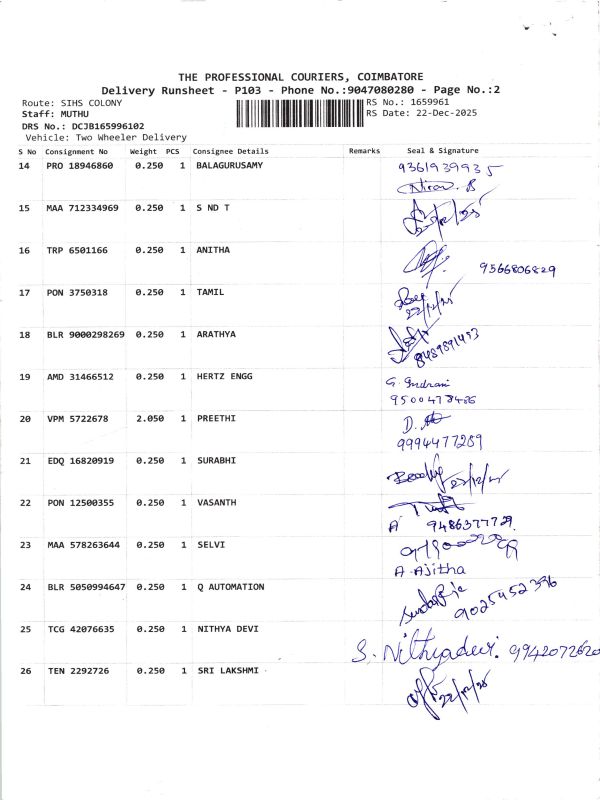 THE PROFESSIONAL COURIERS, COIMBATORE
Delivery Runsheet - P103 - Phone No.:9047080280 - Page No.:2
Route: SIHS COLONY RS No.: 1659961
Staff: MUTHU RS Date: 22-Dec-2025
DRS No.: DCJB165996102
Vehicle: Two Wheeler Delivery
S No Consignment No Weight PCS Consignee Details Remarks Seal & Signature
14 PRO 18946860 0.250 1 BALAGURUSAMY 9361939935
15 MAA 712334969 0.250 1 S ND T
16 TRP 6501166 0.250 1 ANITHA
9566806829
17 PON 3750318 0.250 1 TAMIL
22/12/25
18 BLR 9000298269 0.250 1 ARATHYA
8489891493
19 AMD 31466512 0.250 1 HERTZ ENGG G. Indrani
9500478486
20 VPM 5722678 2.050 1 PREETHI D.
9994477289
21 EDQ 16820919 0.250 1 SURABHI
22/12/25
22 PON 12500355 0.250 1 VASANTH
A 9486377729.
23 MAA 578263644 0.250 1 SELVI
A. Ajitha
24 BLR 5050994647 0.250 1 Q AUTOMATION
9025452396
25 TCG 42076635 0.250 1 NITHYA DEVI
S. Nithyadevi. 9942072620
26 TEN 2292726 0.250 1 SRI LAKSHMI
22/12/25